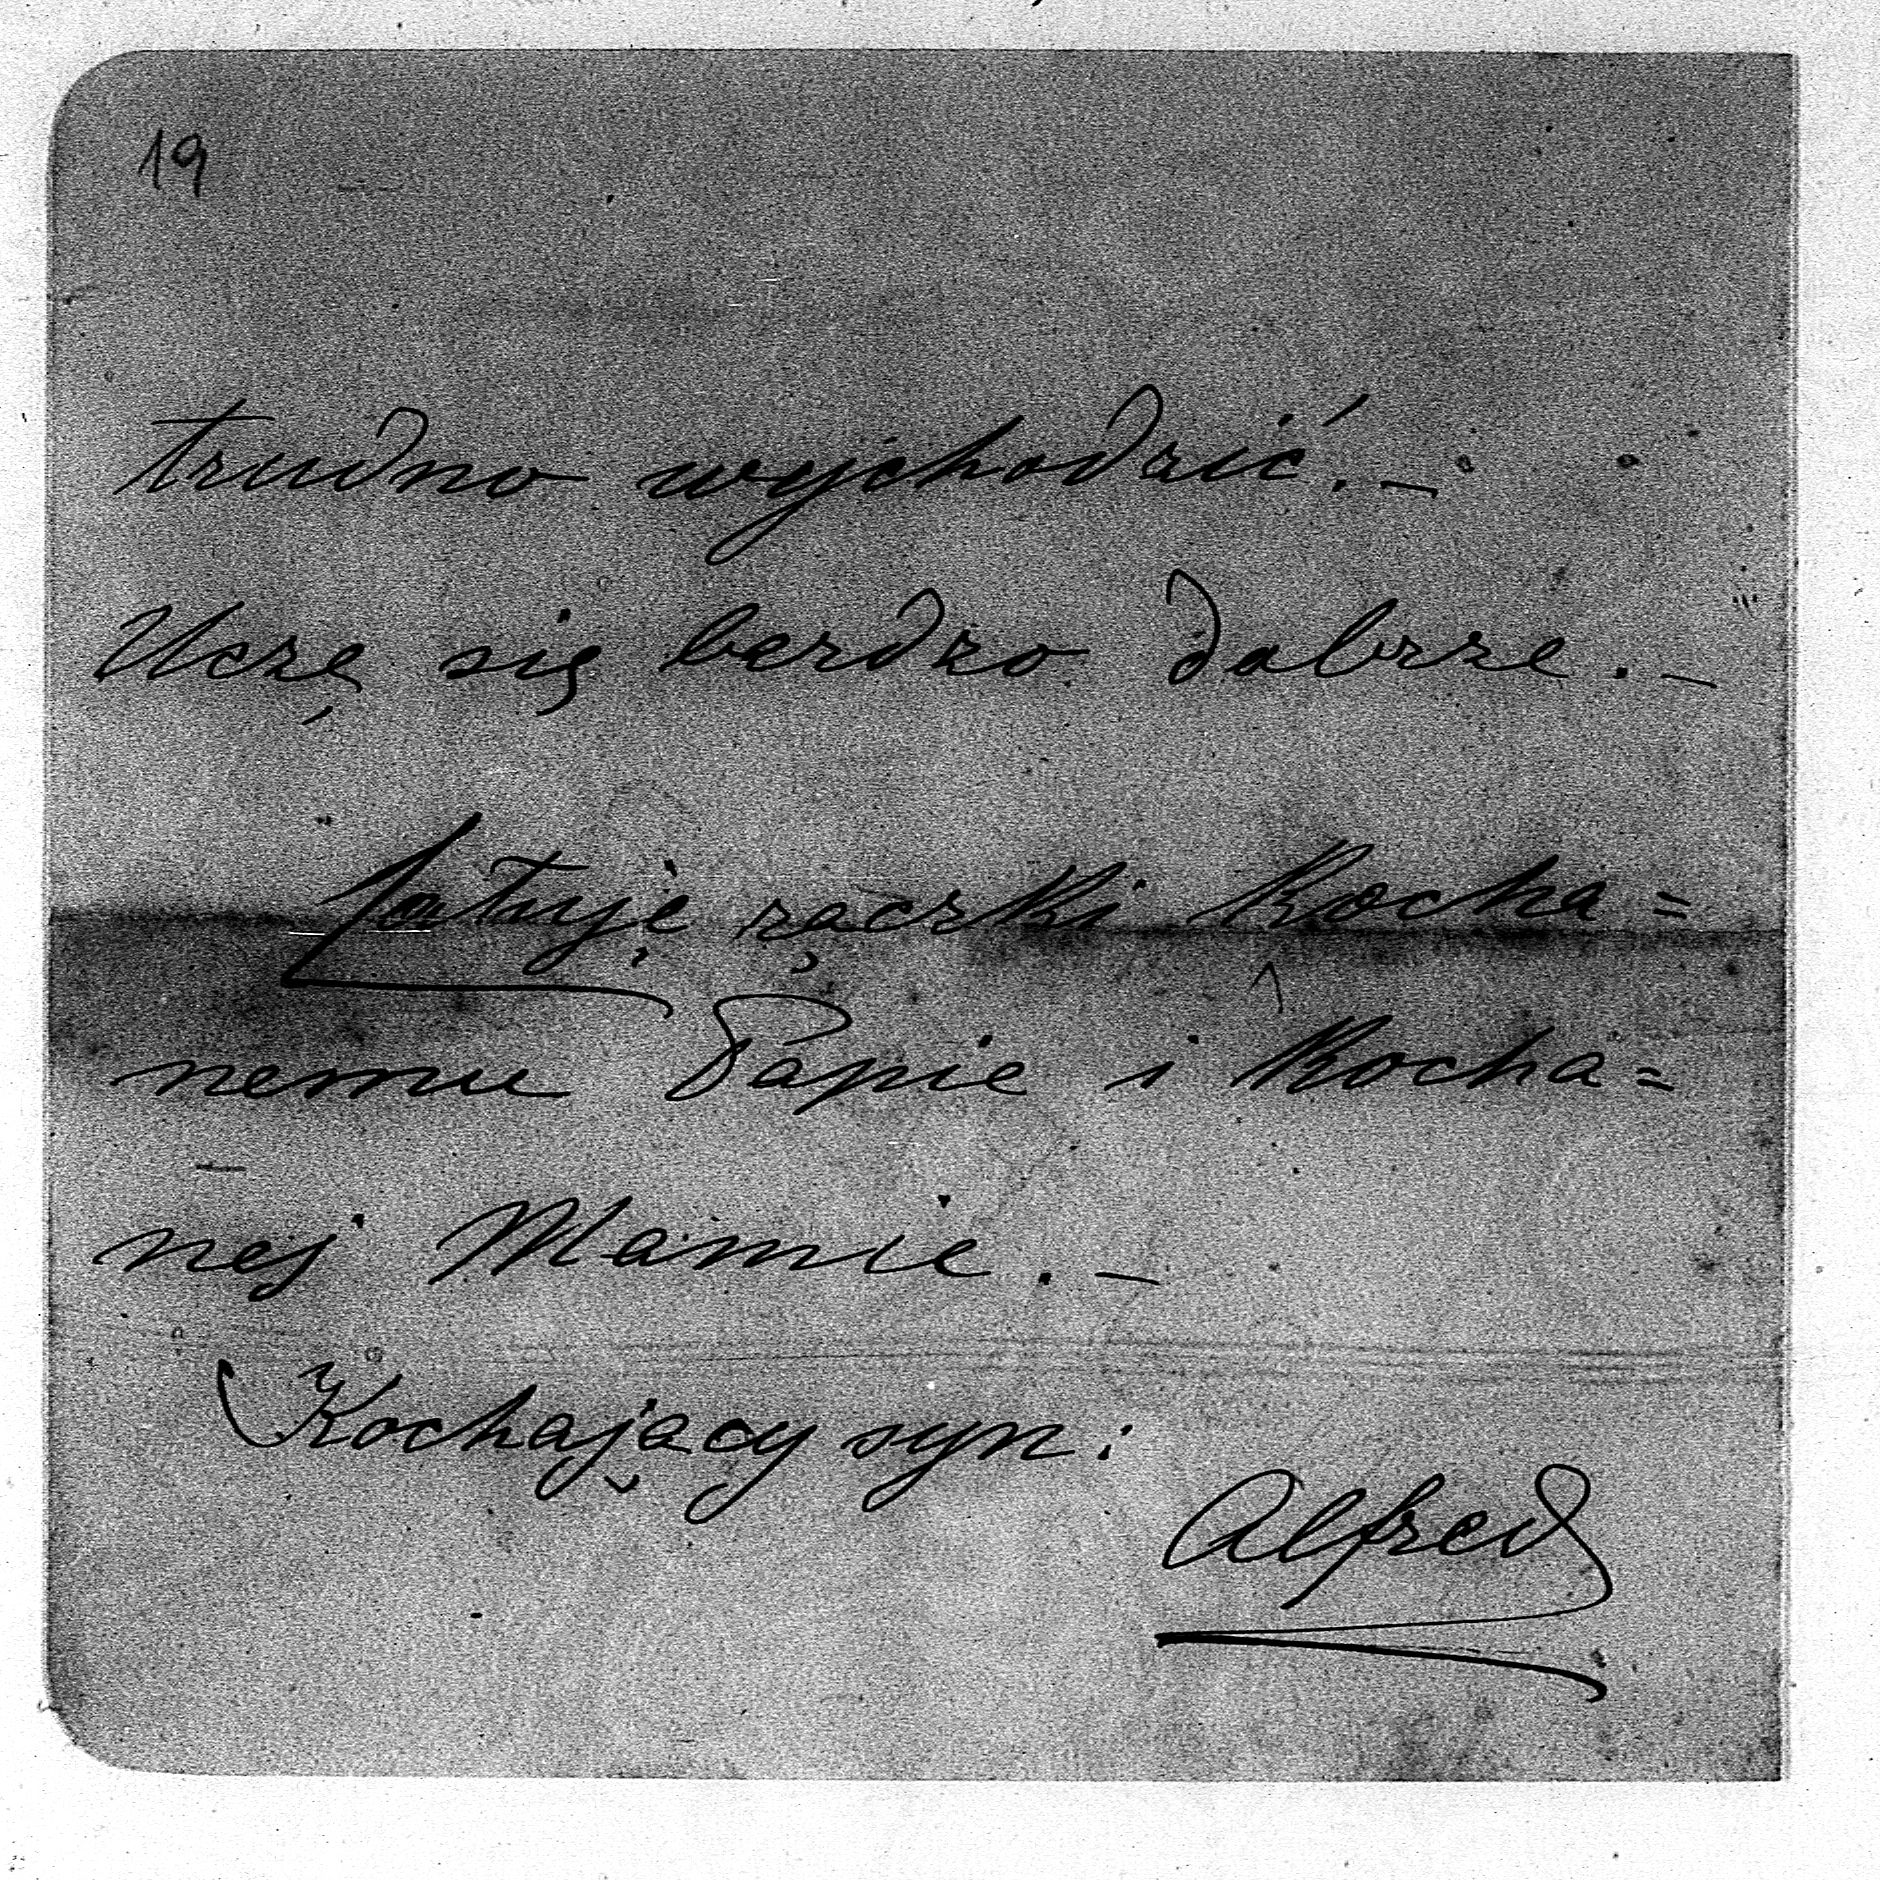 19
trudno wychodzić. –
Uczę się berdzo dobrze. –
Całuję rączki kocha=
nemu Papie i kocha=
nej Mamie. –
Kochający syn:
Alfred